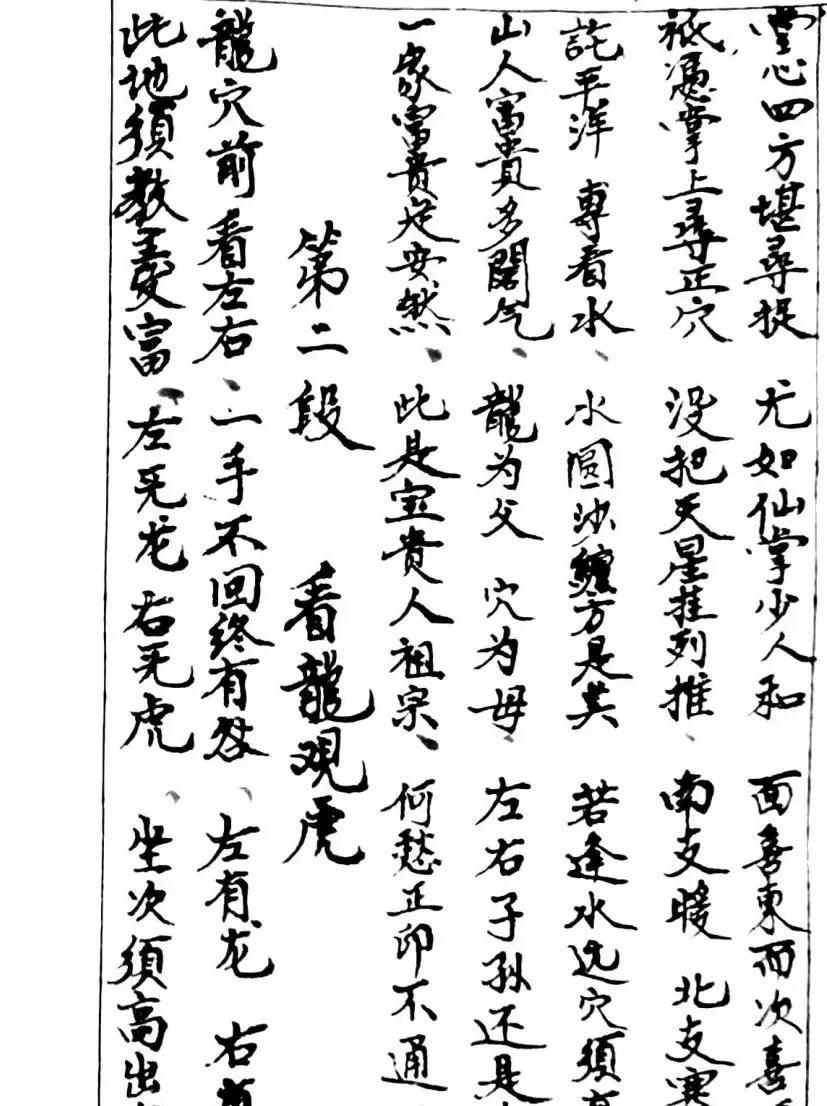 掌心四方堪尋捉 尤如仙掌少人和 面喜東而次喜
祗憑掌上尋正穴 没把天星挂列推、南支暖 北支寒
託平洋 專看水、水圓沙纏方是 若逢水边穴須
山人富貴多闊气、龍为父 穴为母、左右子孫还是
一家富貴定安然、此是宝貴人祖宗、何愁正印不通
第二段 看龍观虎
龍穴前 看左右、二手不回终有咎、左有龙 右有
此地須教主憂富、左无龙 右无虎、坐次須高出